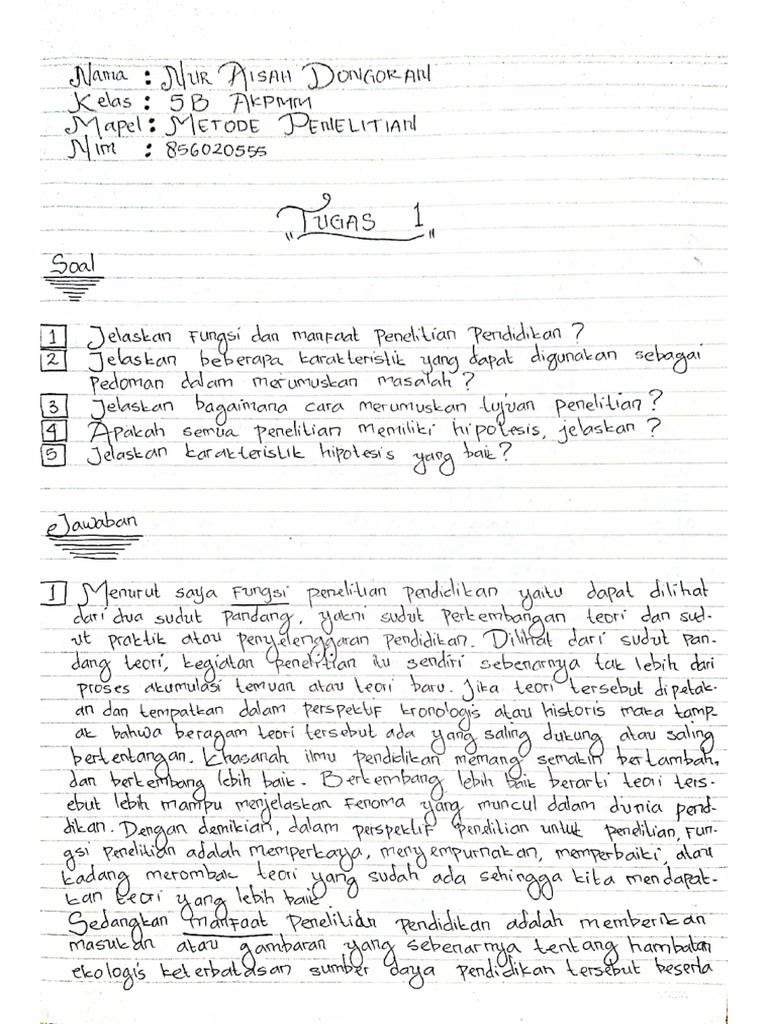 Nama : NUR AISAH DONGORAN
Kelas : 5B AKPMM
Mapel : METODE PENELITIAN
Nim : 856020555
"TUGAS 1"
Soal
1 Jelaskan fungsi dan manfaat penelitian pendidikan ?
2 Jelaskan beberapa karakteristik yang dapat digunakan sebagai
pedoman dalam merumuskan masalah ?
3 Jelaskan bagaimana cara merumuskan tujuan penelitian ?
4 Apakah semua penelitian memiliki hipotesis, jelaskan ?
5 Jelaskan karakteristik hipotesis yang baik ?
Jawaban
1 Menurut saya fungsi penelitian pendidikan yaitu dapat dilihat
dari dua sudut pandang, yakni sudut perkembangan teori dan sud-
ut praktik atau penyelenggaran pendidikan. Dilihat dari sudut pan-
dang teori, kegiatan penelitian itu sendiri sebenarnya tak lebih dari
proses akumulasi temuan atau teori baru. Jika teori tersebut dipetak-
an dan tempatkan dalam perspektif kronologis atau historis maka tamp-
ak bahwa beragam teori tersebut ada yang saling dukung atau saling
bertentangan. Khasanah ilmu pendidikan memang semakin bertambah,
dan berkembang lebih baik. Berkembang lebih baik berarti teori ters-
ebut lebih mampu menjelaskan fenoma yang muncul dalam dunia pend-
dikan. Dengan demikian, dalam perspektif penelitian untuk penelitian, fun-
gsi penelitian adalah memperkaya, menyempurnakan, memperbaiki, atau
kadang merombak teori yang sudah ada sehingga kita mendapat-
kan teori yang lebih baik.
Sedangkan manfaat penelitian pendidikan adalah memberikan
masukan atau gambaran yang sebenarnya tentang hambatan
ekologis keterbatasan sumber daya pendidikan tersebut beserta